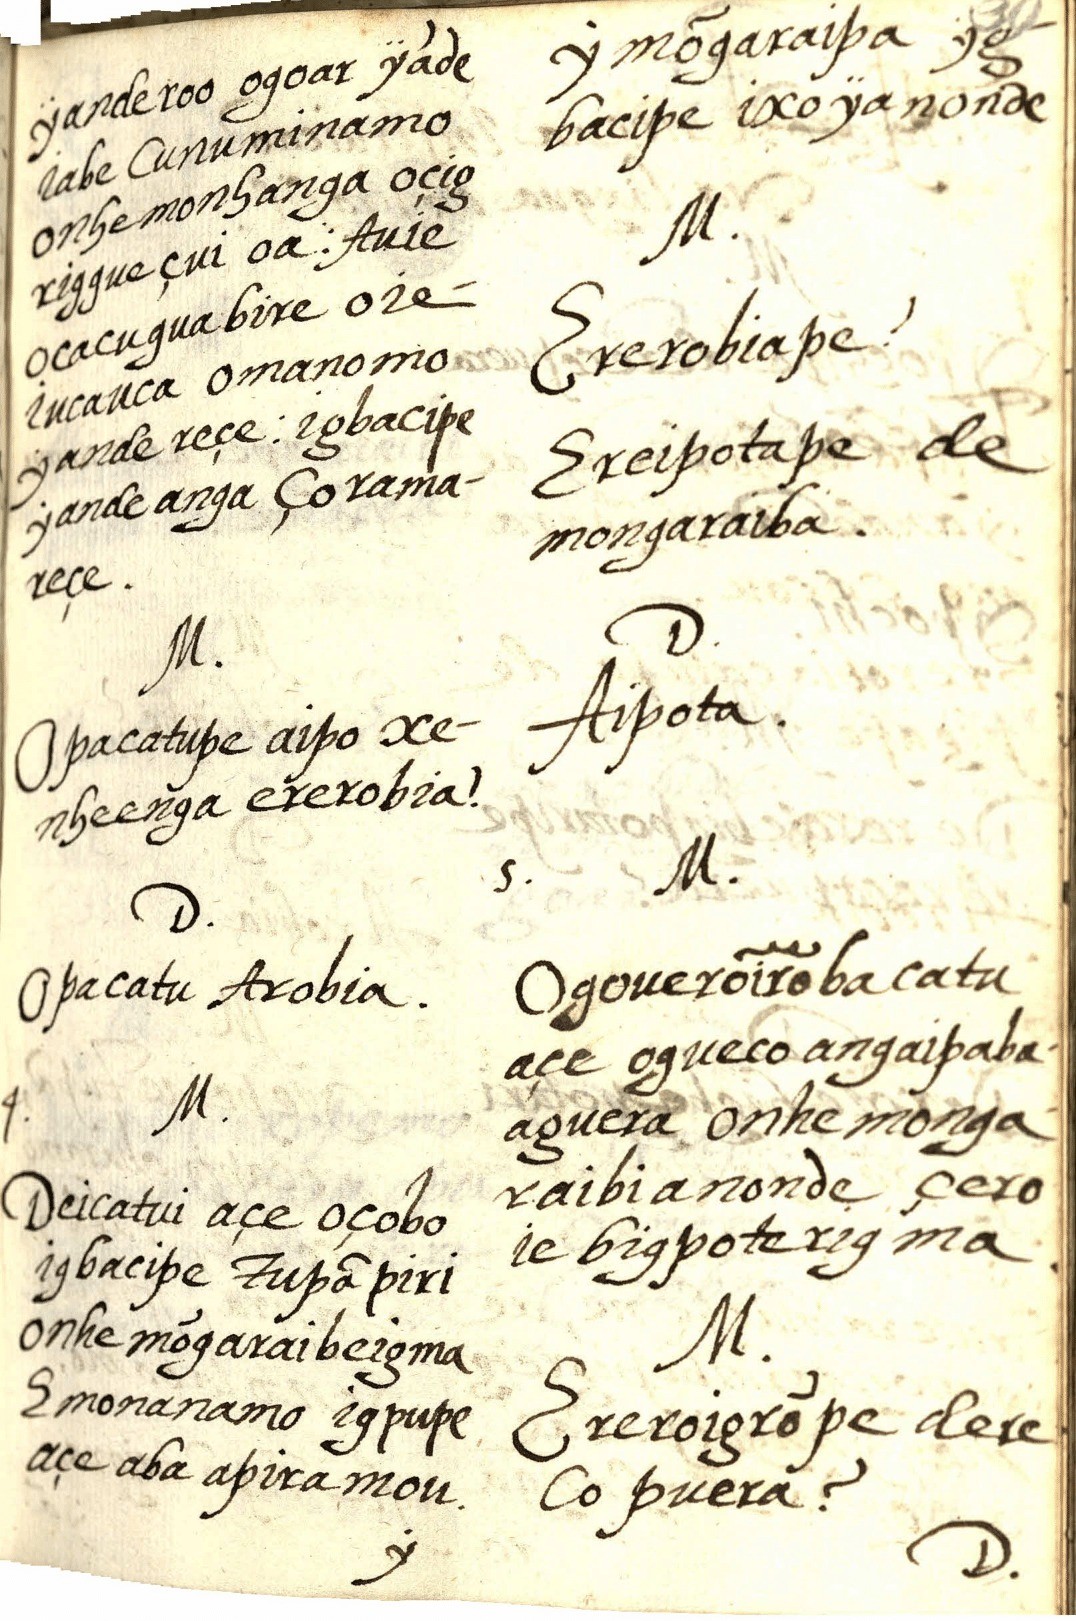 ÿande roo ogoar ÿãde
iabe Cunuminamo
onhemonhanga oçig
riggue çui oa: Auie
ocacuguabire oie-
iucauca omanomo
ÿande reçe: igbacipe
ÿande anga Çorama-
reçe.
M.
Opacatupe aipo xe-
nheenga ererobia?
D.
Opacatu Arobia.
4. M.
Deicatui açe oçobo
igbacipe Tupã piri
onhe mõgaraibeigma
Emonanamo igpupe
açe aba apiramou.
ÿ
ÿ mõgaraipa ÿg
bacipe ixo ÿanonde
M.
Ererobiape?
Ereipotape de
mongaraiba.
D.
Aipota.
5. M.
Ogouerõirõbacatu
açe ogueco angaipaba-
aguera onhemonga-
raibianonde çero
ie bigpoterigma.
M.
Ereroigrõpe dere
Co puera?
D.